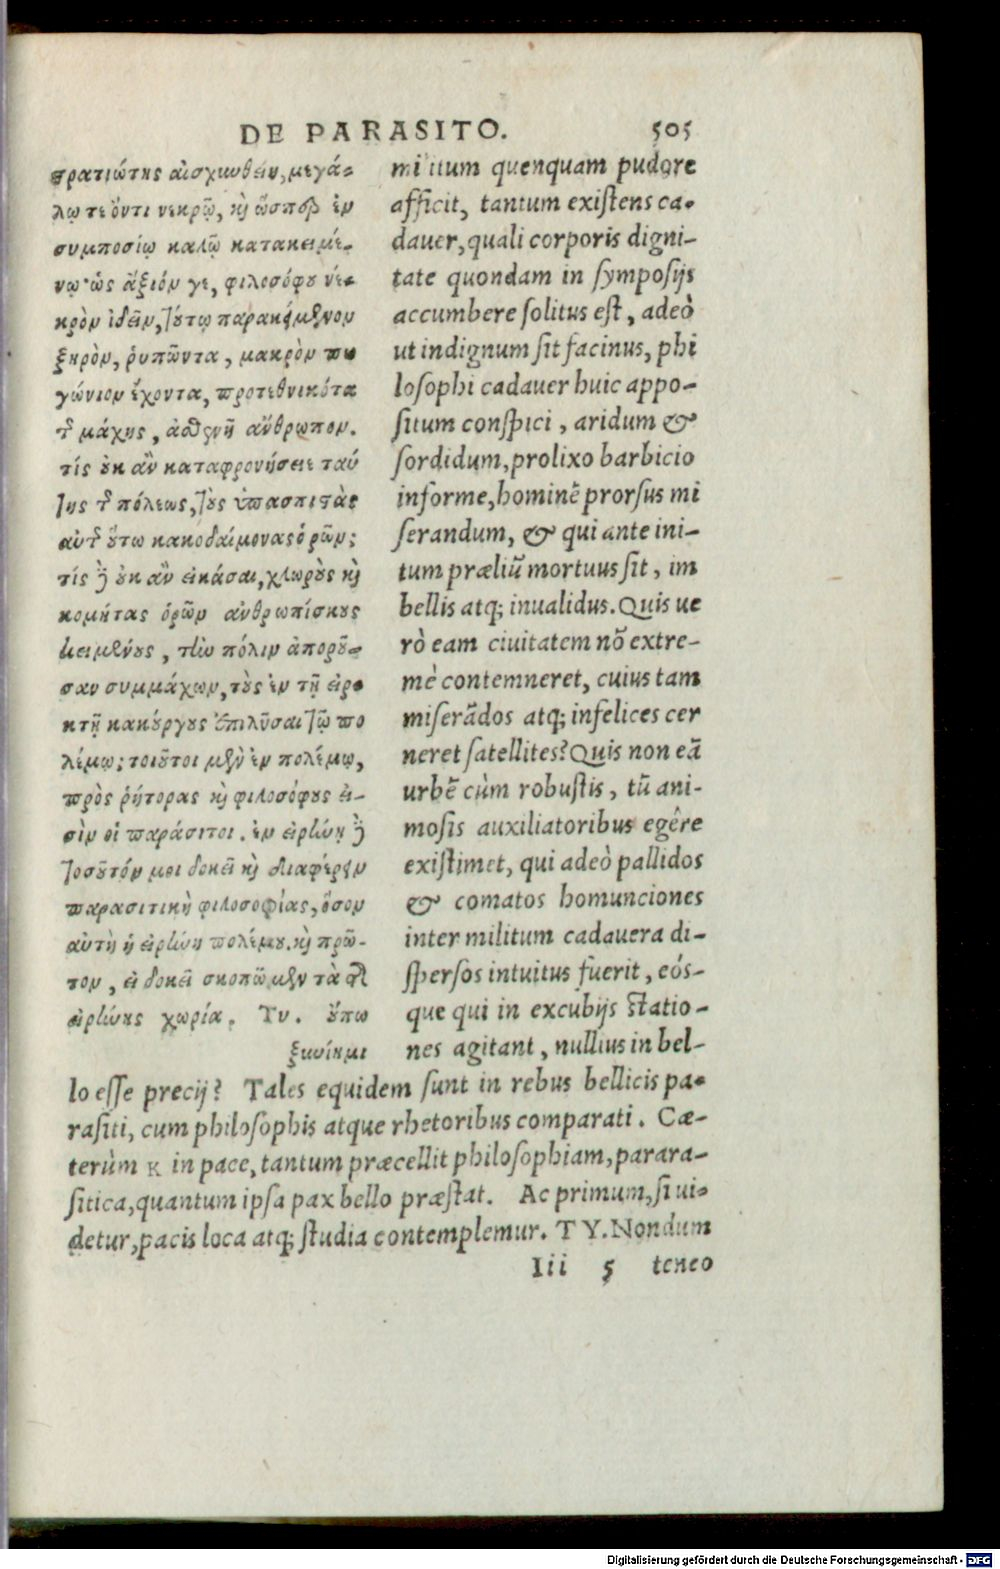 DE PARASITO. 505
στρατιώτης αἰσχυνθείη, μεγά-
λῳ τε ὄντι νεκρῷ, κὶ ὥσπερ ἐν
συμποσίῳ καλῷ κατακειμέ-
νῳ· ὡς ἄξιόν γε, φιλοσόφου νε-
κρὸν ἰδεῖν, τούτῳ παρακείμενον
ξηρὸν, ῥυπῶντα, μακρὸν πω
γώνιον ἔχοντα, προτεθνικότα
τ μάχης, ἀσθενῆ ἄνθρωπον.
τίς οὐκ ἂν καταφρονήσειε ταύ
της τ πόλεως, τοὺς ὑπασπιστὰς
αὐτ οὕτω κακοδαίμονας ὁρῶν;
τίς δ οὐκ ἂν εἰκάσαι, χλωροὺς κὶ
κομήτας ὁρῶν ἀνθρωπίσκους
κειμένους, τὴν πόλιν ἀποροῦ-
σαν συμμάχων, τοὺς ἐν τῇ εἱρ-
κτῇ κακούργους ἐπιλῦσαι τῷ πο
λέμῳ; τοιοῦτοι μὲν ἐν πολέμῳ,
πρὸς ῥήτορας κὶ φιλοσόφους εἰ-
σὶν οἱ παράσιτοι. ἐν εἰρήνῃ δ
τοσοῦτόν μοι δοκεῖ κὶ διαφέρειν
παρασιτικὴ φιλοσοφίας, ὅσον
αὐτὴ ἡ εἰρήνη πολέμου. κὶ πρῶ-
τον, εἰ δοκεῖ σκοπῶμεν τὰ τ
εἰρήνης χωρία. Τυ. ὔπω
ξυνίημι
militum quenquam pudore
afficit, tantum existens ca-
dauer, quali corporis digni-
tate quondam in symposijs
accumbere solitus est, adeò
ut indignum sit facinus, phi
losophi cadauer huic appo-
situm conspici, aridum &
sordidum, prolixo barbicio
informe, hominẽ prorsus mi
serandum, & qui ante ini-
tum præliũ mortuus sit, im
bellis atq; inualidus. Quis ue
rò eam ciuitatem nõ extre-
mè contemneret, cuius tam
miserãdos atq; infelices cer
neret satellites? Quis non eã
urbẽ cùm robustis, tũ ani-
mosis auxiliatoribus egêre
existimet, qui adeò pallidos
& comatos homunciones
inter militum cadauera di-
spersos intuitus fuerit, eós-
que qui in excubijs statio-
nes agitant, nullius in bel-
lo esse precij? Tales equidem sunt in rebus bellicis pa-
rasiti, cum philosophis atque rhetoribus comparati. Cæ-
terùm K in pace, tantum præcellit philosophiam, parara-
sitica, quantum ipsa pax bello præstat. Ac primum, si ui-
detur, pacis loca atq; studia contemplemur. TY. Nondum
Iii 5 teneo
Digitalisierung gefördert durch die Deutsche Forschungsgemeinschaft - DFG